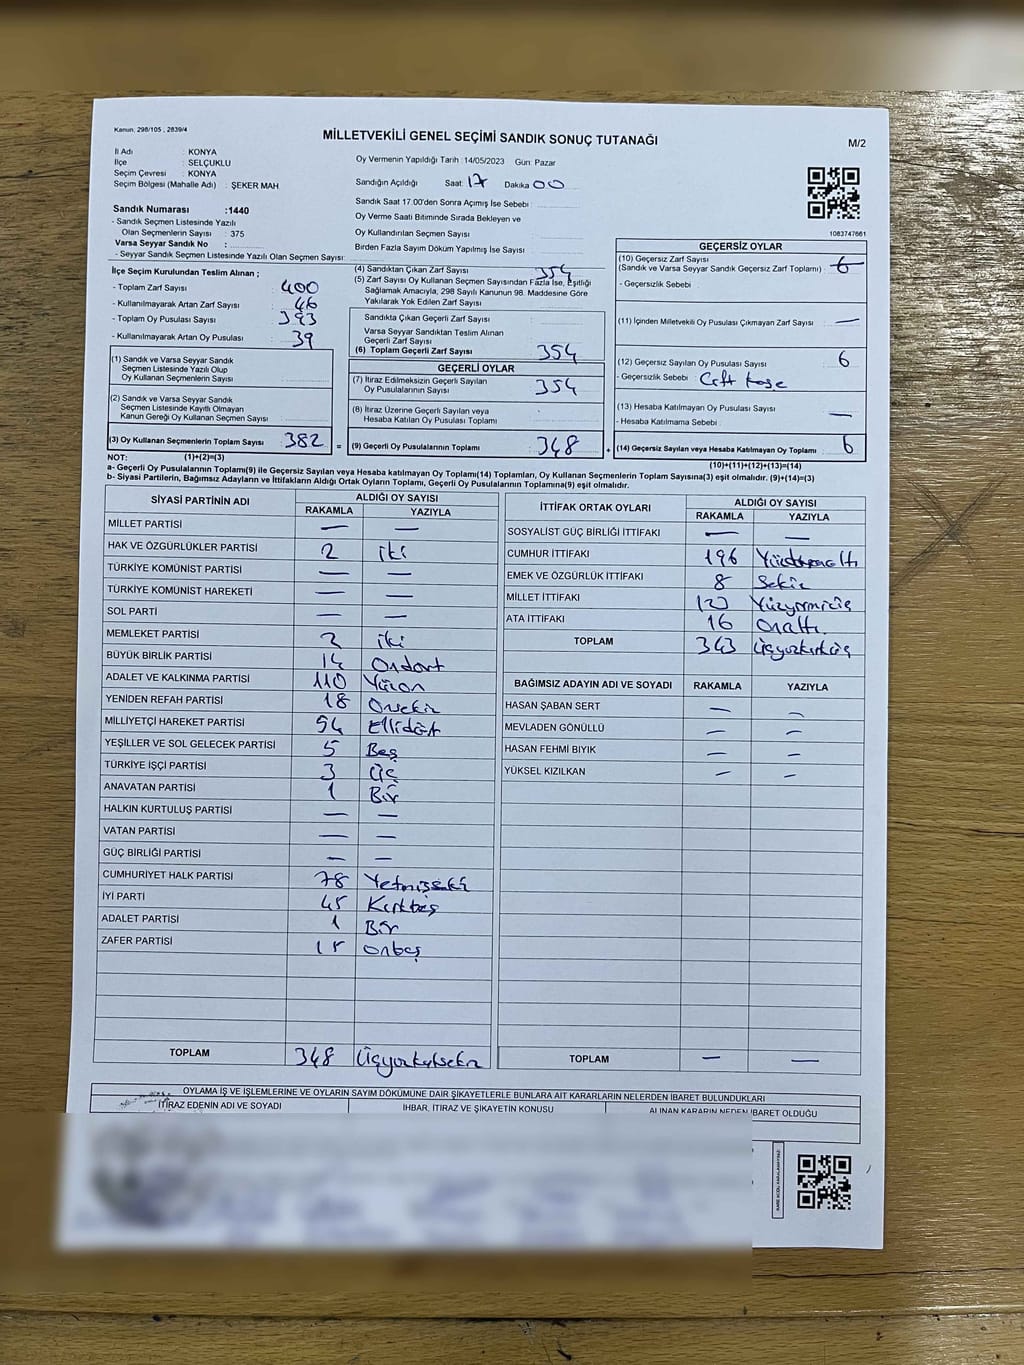 Kanun, 298/105 , 2839/4
MİLLETVEKİLİ GENEL SEÇİMİ SANDIK SONUÇ TUTANAĞI
M/2
İl Adı : KONYA
İlçe : SELÇUKLU
Seçim Çevresi : KONYA
Seçim Bölgesi (Mahalle Adı) : ŞEKER MAH
Oy Vermenin Yapıldığı Tarih :14/05/2023 Gün: Pazar
Sandığın Açıldığı Saat: 17 Dakika 00
Sandık Saat 17.00'den Sonra Açımış İse Sebebi :
Oy Verme Saati Bitiminde Sırada Bekleyen ve
Oy Kullandırılan Seçmen Sayısı :
Birden Fazla Sayım Döküm Yapılmış İse Sayısı :
1083747661
Sandık Numarası :1440
- Sandık Seçmen Listesinde Yazılı
Olan Seçmenlerin Sayısı : 375
Varsa Seyyar Sandık No :
- Seyyar Sandık Seçmen Listesinde Yazılı Olan Seçmen Sayısı:
İlçe Seçim Kurulundan Teslim Alınan ;
- Toplam Zarf Sayısı : 400
- Kullanılmayarak Artan Zarf Sayısı : 46
- Toplam Oy Pusulası Sayısı : 393
- Kullanılmayarak Artan Oy Pusulası : 39
(1) Sandık ve Varsa Seyyar Sandık
Seçmen Listesinde Yazılı Olup
Oy Kullanan Seçmenlerin Sayısı :
(2) Sandık ve Varsa Seyyar Sandık
Seçmen Listesinde Kayıtlı Olmayan
Kanun Gereği Oy Kullanan Seçmen Sayısı :
(3) Oy Kullanan Seçmenlerin Toplam Sayısı : 382
(4) Sandıktan Çıkan Zarf Sayısı : 354
(5) Zarf Sayısı Oy Kullanan Seçmen Sayısından Fazla İse, Eşitliği
Sağlamak Amacıyla, 298 Sayılı Kanunun 98. Maddesine Göre
Yakılarak Yok Edilen Zarf Sayısı
Sandıkta Çıkan Geçerli Zarf Sayısı :
Varsa Seyyar Sandıktan Teslim Alınan
Geçerli Zarf Sayısı :
(6) Toplam Geçerli Zarf Sayısı : 354
GEÇERLİ OYLAR
(7) İtiraz Edilmeksizin Geçerli Sayılan
Oy Pusulalarının Sayısı : 354
(8) İtiraz Üzerine Geçerli Sayılan veya
Hesaba Katılan Oy Pusulaları Toplamı :
= (9) Geçerli Oy Pusulalarının Toplamı : 348
GEÇERSİZ OYLAR
(10) Geçersiz Zarf Sayısı
(Sandık ve Varsa Seyyar Sandık Geçersiz Zarf Toplamı) : 6
- Geçersizlik Sebebi :
(11) İçinden Milletvekili Oy Pusulası Çıkmayan Zarf Sayısı : —
(12) Geçersiz Sayılan Oy Pusulası Sayısı : 6
- Geçersizlik Sebebi : Çift kaşe
(13) Hesaba Katılmayan Oy Pusulası Sayısı : —
- Hesaba Katılmama Sebebi :
+ (14) Geçersiz Sayılan veya Hesaba Katılmayan Oy Toplamı : 6
NOT: (1)+(2)=(3)
(10)+(11)+(12)+(13)=(14)
a- Geçerli Oy Pusulalarının Toplamı(9) ile Geçersiz Sayılan veya Hesaba katılmayan Oy Toplamı(14) Toplamları, Oy Kullanan Seçmenlerin Toplam Sayısına(3) eşit olmalıdır. (9)+(14)=(3)
b- Siyasi Partilerin, Bağımsız Adayların ve İttifakların Aldığı Ortak Oyların Toplamı, Geçerli Oy Pusulalarının Toplamına(9) eşit olmalıdır.
SİYASİ PARTİNİN ADI ALDIĞI OY SAYISI
RAKAMLA YAZIYLA
MİLLET PARTİSİ — —
HAK VE ÖZGÜRLÜKLER PARTİSİ 2 iki
TÜRKİYE KOMÜNİST PARTİSİ — —
TÜRKİYE KOMÜNİST HAREKETİ — —
SOL PARTİ — —
MEMLEKET PARTİSİ 2 iki
BÜYÜK BİRLİK PARTİSİ 14 Ondört
ADALET VE KALKINMA PARTİSİ 110 Yüzon
YENİDEN REFAH PARTİSİ 18 Onsekiz
MİLLİYETÇİ HAREKET PARTİSİ 54 Ellidört
YEŞİLLER VE SOL GELECEK PARTİSİ 5 Beş
TÜRKİYE İŞÇİ PARTİSİ 3 Üç
ANAVATAN PARTİSİ 1 Bir
HALKIN KURTULUŞ PARTİSİ — —
VATAN PARTİSİ — —
GÜÇ BİRLİĞİ PARTİSİ — —
CUMHURİYET HALK PARTİSİ 78 Yetmişsekiz
İYİ PARTİ 45 Kırkbeş
ADALET PARTİSİ 1 Bir
ZAFER PARTİSİ 15 Onbeş
TOPLAM 348 Üçyüzkırksekiz
İTTİFAK ORTAK OYLARI ALDIĞI OY SAYISI
RAKAMLA YAZIYLA
SOSYALİST GÜÇ BİRLİĞİ İTTİFAKI — —
CUMHUR İTTİFAKI 196 Yüzdoksanaltı
EMEK VE ÖZGÜRLÜK İTTİFAKI 8 Sekiz
MİLLET İTTİFAKI 123 Yüzyirmiüç
ATA İTTİFAKI 16 Onaltı
TOPLAM 343 Üçyüzkırküç
BAĞIMSIZ ADAYIN ADI VE SOYADI RAKAMLA YAZIYLA
HASAN ŞABAN SERT — —
MEVLADEN GÖNÜLLÜ — —
HASAN FEHMİ BIYIK — —
YÜKSEL KIZILKAN — —
TOPLAM — —
OYLAMA İŞ VE İŞLEMLERİNE VE OYLARIN SAYIM DÖKÜMÜNE DAİR ŞİKAYETLERLE BUNLARA AİT KARARLARIN NELERDEN İBARET BULUNDUKLARI
İTİRAZ EDENİN ADI VE SOYADI İHBAR, İTİRAZ VE ŞİKAYETİN KONUSU ALINAN KARARIN NEDEN İBARET OLDUĞU